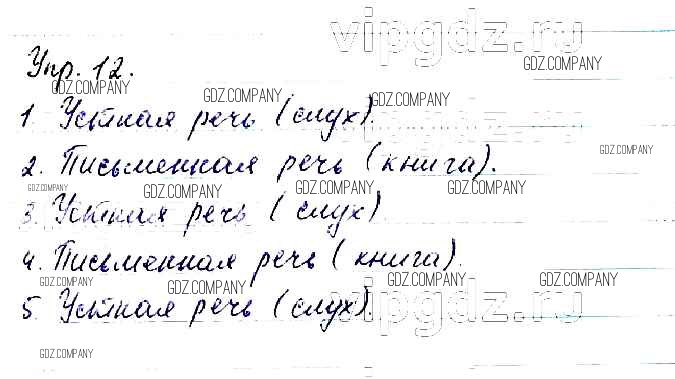 vipgdz.ru
Упр. 12.
GDZ.COMPANY
GDZ.COMPANY
GDZ.COMPANY GDZ.COMPANY
1. Устная речь (слух).
GDZ.COMPANY
2. Письменная речь (книга).
GDZ.COMPANY GDZ.COMPANY GDZ.COMPANY GDZ.COMPANY
3. Устная речь (слух)
4. Письменная речь (книга).
GDZ.COMPANY GDZ.COMPANY GDZ.COMPANY GDZ.COMPANY
5 Устная речь (слух).
vipgdz.ru
GDZ.COMPANY